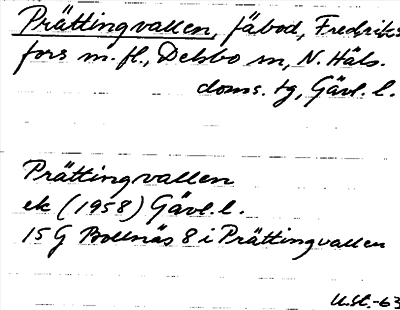 Prättingvallen, fäbod, Fredriks
fors m. fl., Delsbo sn, N. Häls.
doms. tg, Gävl. l.
Prättingvallen
ek (1958) Gävl. l.
15 G Bollnäs 8 i Prättingvallen
U.St.-63